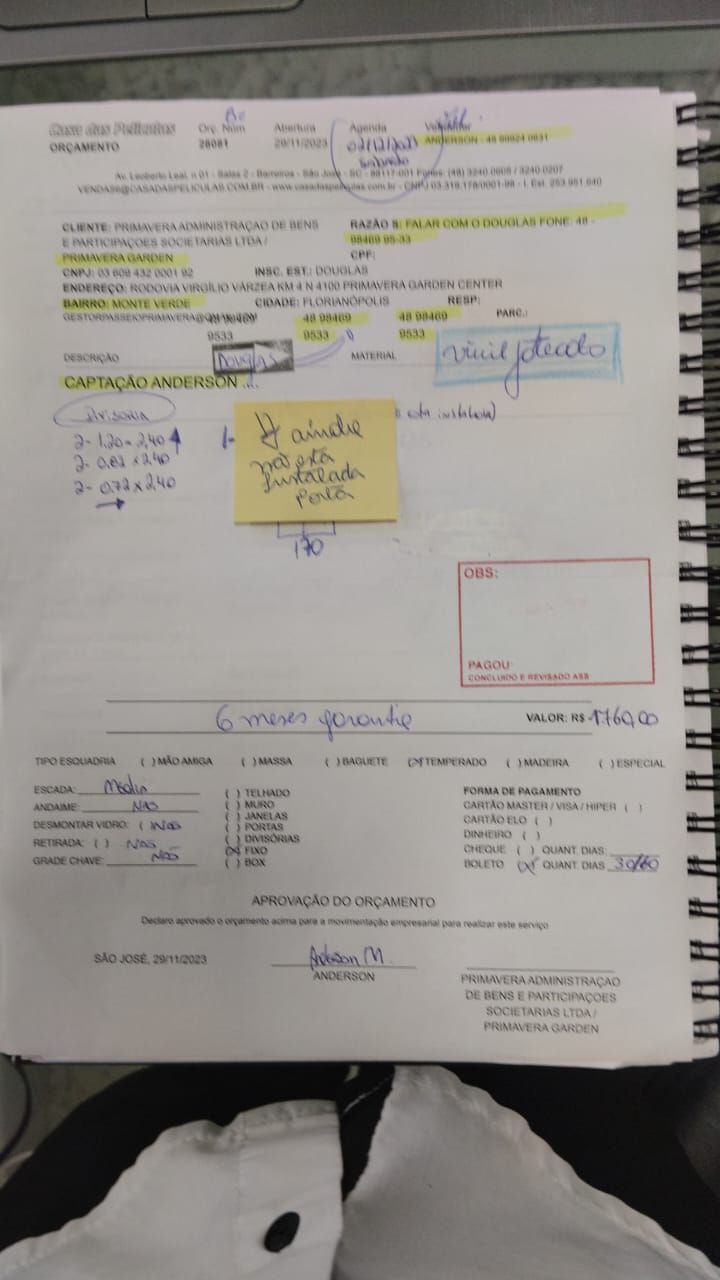 Casa das Películas Orç. Núm Abertura Agenda Vendedor
ORÇAMENTO 28081 29/11/2023 02/12/2023 ANDERSON - 48 98924 0631
sábado
Av. Leoberto Leal, n 01 - Salas 2 - Barreiros - São José - SC - 88117-001 Fones: (48) 3240.0605 / 3240.0207
VENDAS6@CASADASPELICULAS.COM.BR - www.casadaspeliculas.com.br - CNPJ 03.319.178/0001-98 - I. Est. 253.951.640
CLIENTE: PRIMAVERA ADMINISTRAÇAO DE BENS RAZÃO S: FALAR COM O DOUGLAS FONE: 48 -
E PARTICIPAÇOES SOCIETARIAS LTDA / 98469 95-33
PRIMAVERA GARDEN CPF:
CNPJ: 03 609 432 0001 92 INSC. EST.: DOUGLAS
ENDEREÇO: RODOVIA VIRGÍLIO VÁRZEA KM 4 N 4100 PRIMAVERA GARDEN CENTER
BAIRRO: MONTE VERDE CIDADE: FLORIANÓPOLIS RESP:
48 98469 48 98469 48 98469 PARC.:
9533 9533 9533
DESCRIÇÃO Douglas MATERIAL vinil jateado
CAPTAÇÃO ANDERSON
Divisoria
2- 1.20 x 2,40
2- 0.82 x 2.40
2- 0,72 x 2,40
1-
Ainda
não está
Instalada
porta
170
OBS:
PAGOU
CONCLUIDO E REVISADO ASS
6 meses garantia VALOR: R$ 1760,00
TIPO ESQUADRIA ( ) MÃO AMIGA ( ) MASSA ( ) BAGUETE (X) TEMPERADO ( ) MADEIRA ( ) ESPECIAL
ESCADA: Media ( ) TELHADO FORMA DE PAGAMENTO
ANDAIME: NÃO ( ) MURO CARTÃO MASTER / VISA / HIPER ( )
( ) JANELAS CARTÃO ELO ( )
DESMONTAR VIDRO: ( ) NÃO ( ) PORTAS DINHEIRO ( )
RETIRADA: ( ) NÃO ( ) DIVISÓRIAS CHEQUE ( ) QUANT. DIAS:
(X) FIXO BOLETO (X) QUANT. DIAS 30/60
GRADE CHAVE: NÃO ( ) BOX
APROVAÇÃO DO ORÇAMENTO
Declaro aprovado o orçamento acima para a movimentação empresarial para realizar este serviço
SÃO JOSÉ, 29/11/2023 Anderson M.
ANDERSON
PRIMAVERA ADMINISTRAÇAO
DE BENS E PARTICIPAÇOES
SOCIETARIAS LTDA /
PRIMAVERA GARDEN